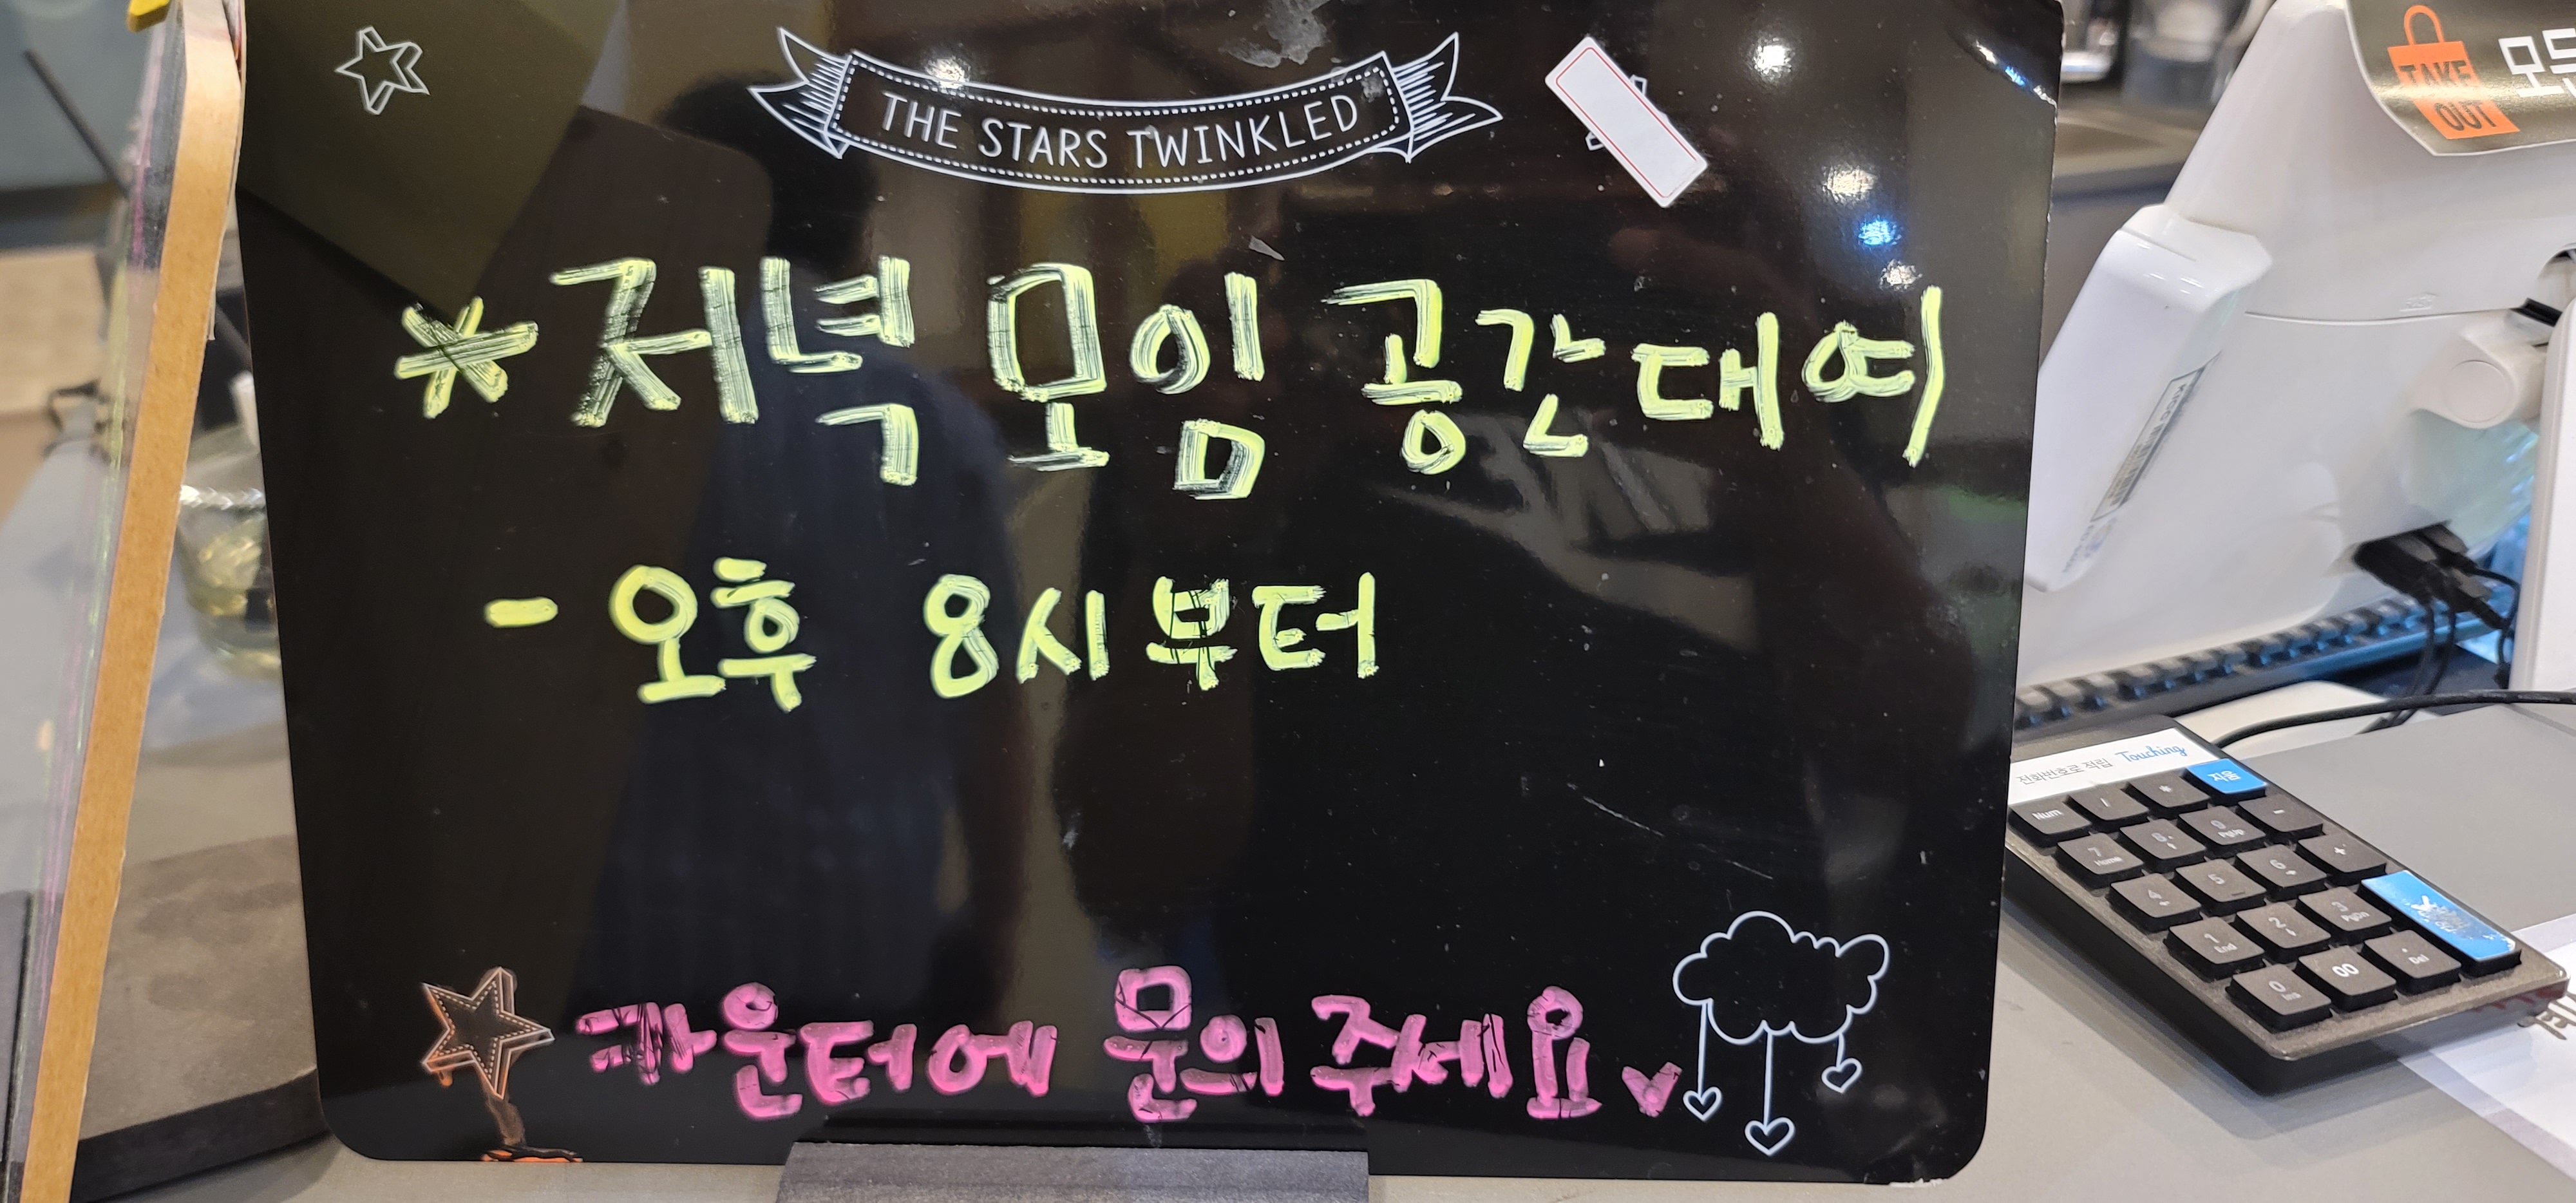 THE STARS TWINKLED
* 저녁 모임 공간대여
- 오후 8시부터
카운터에 문의 주세요✓
TAKE
OUT
전화번호로 적립 Touching
지움
Num / *
7 Home 8 9 PgUp -
4 5 6 +
1 End 2 3 PgDn
0 Ins 00 . Del